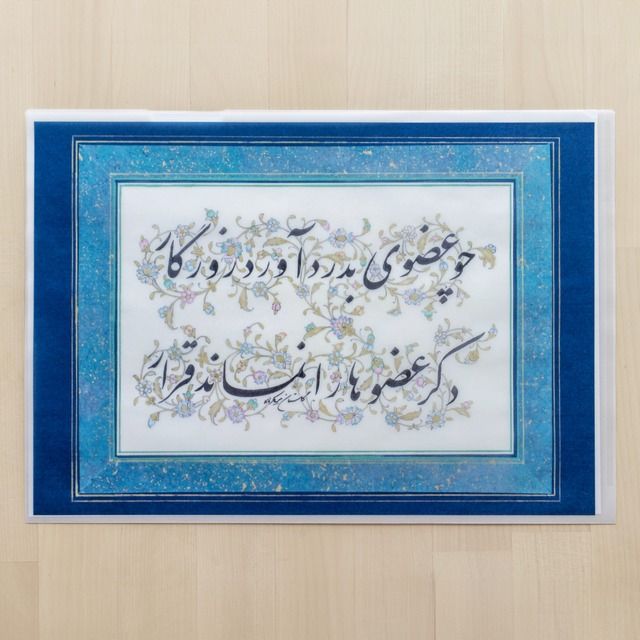 چو عضوی بدرد آورد روزگار
دگر عضوها را نماند قرار